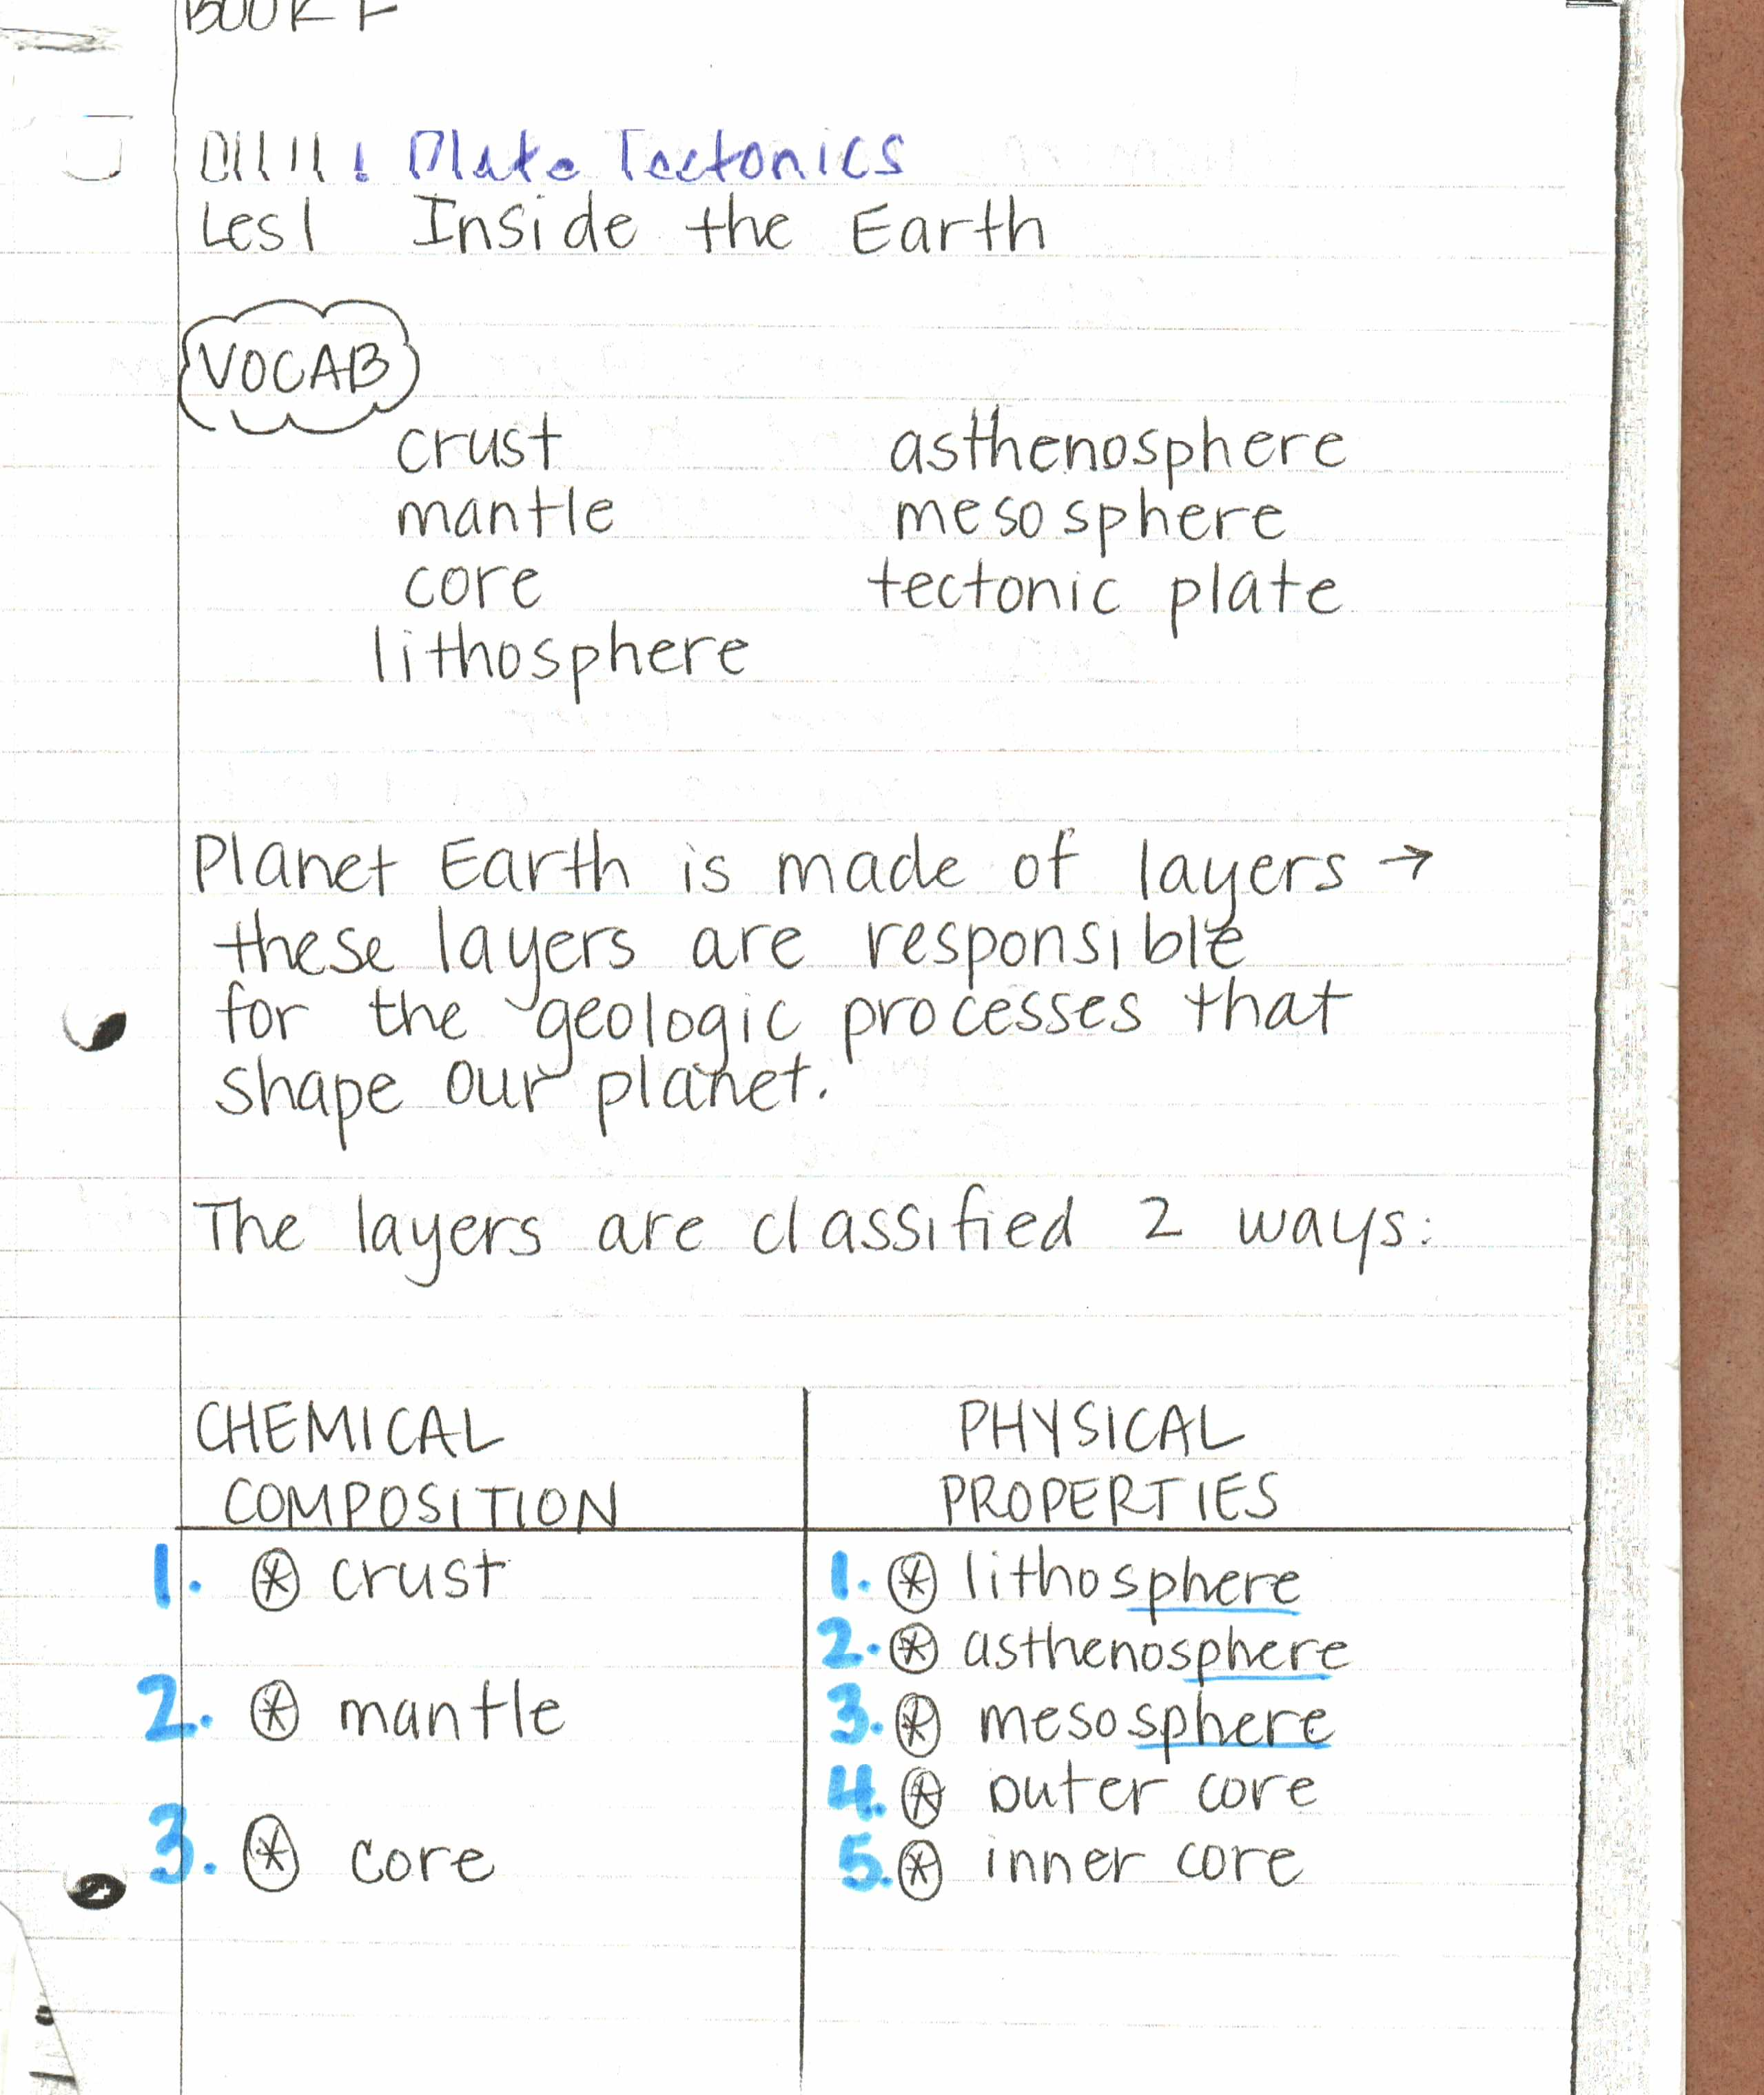 BOOK F
Plate Tectonics
Les 1 Inside the Earth
VOCAB
crust asthenosphere
mantle mesosphere
core tectonic plate
lithosphere
Planet Earth is made of layers →
these layers are responsible
for the geologic processes that
shape our planet.
The layers are classified 2 ways:
CHEMICAL PHYSICAL
COMPOSITION PROPERTIES
1. crust 1. lithosphere
2. asthenosphere
2. mantle 3. mesosphere
4. outer core
3. core 5. inner core